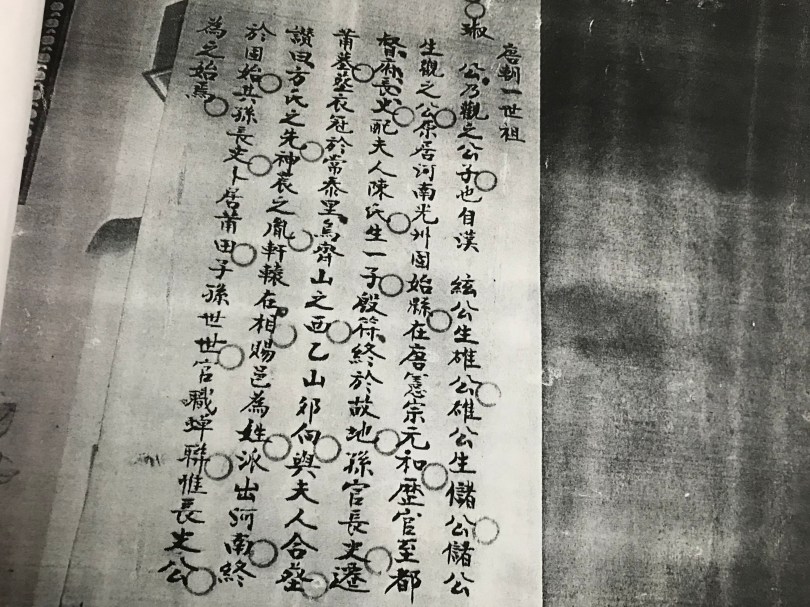 唐朝一世祖
琡 公乃觀之公子也自漢 紘公生雄公雄公生儲公儲公
生觀之公原居河南光州固始縣在唐憲宗元和歷官至都
督府長史配夫人陳氏生一子殷符終於故地孫官長史遷
莆墓葬衣冠於常泰里烏齊山之西乙山邜向與夫人合葬
讃曰方氏之先神農之胤軒轅在相賜邑為姓派出河南終
於固始其孫長史卜居莆田子孫世世官職蟬聯惟長史公
為之始焉